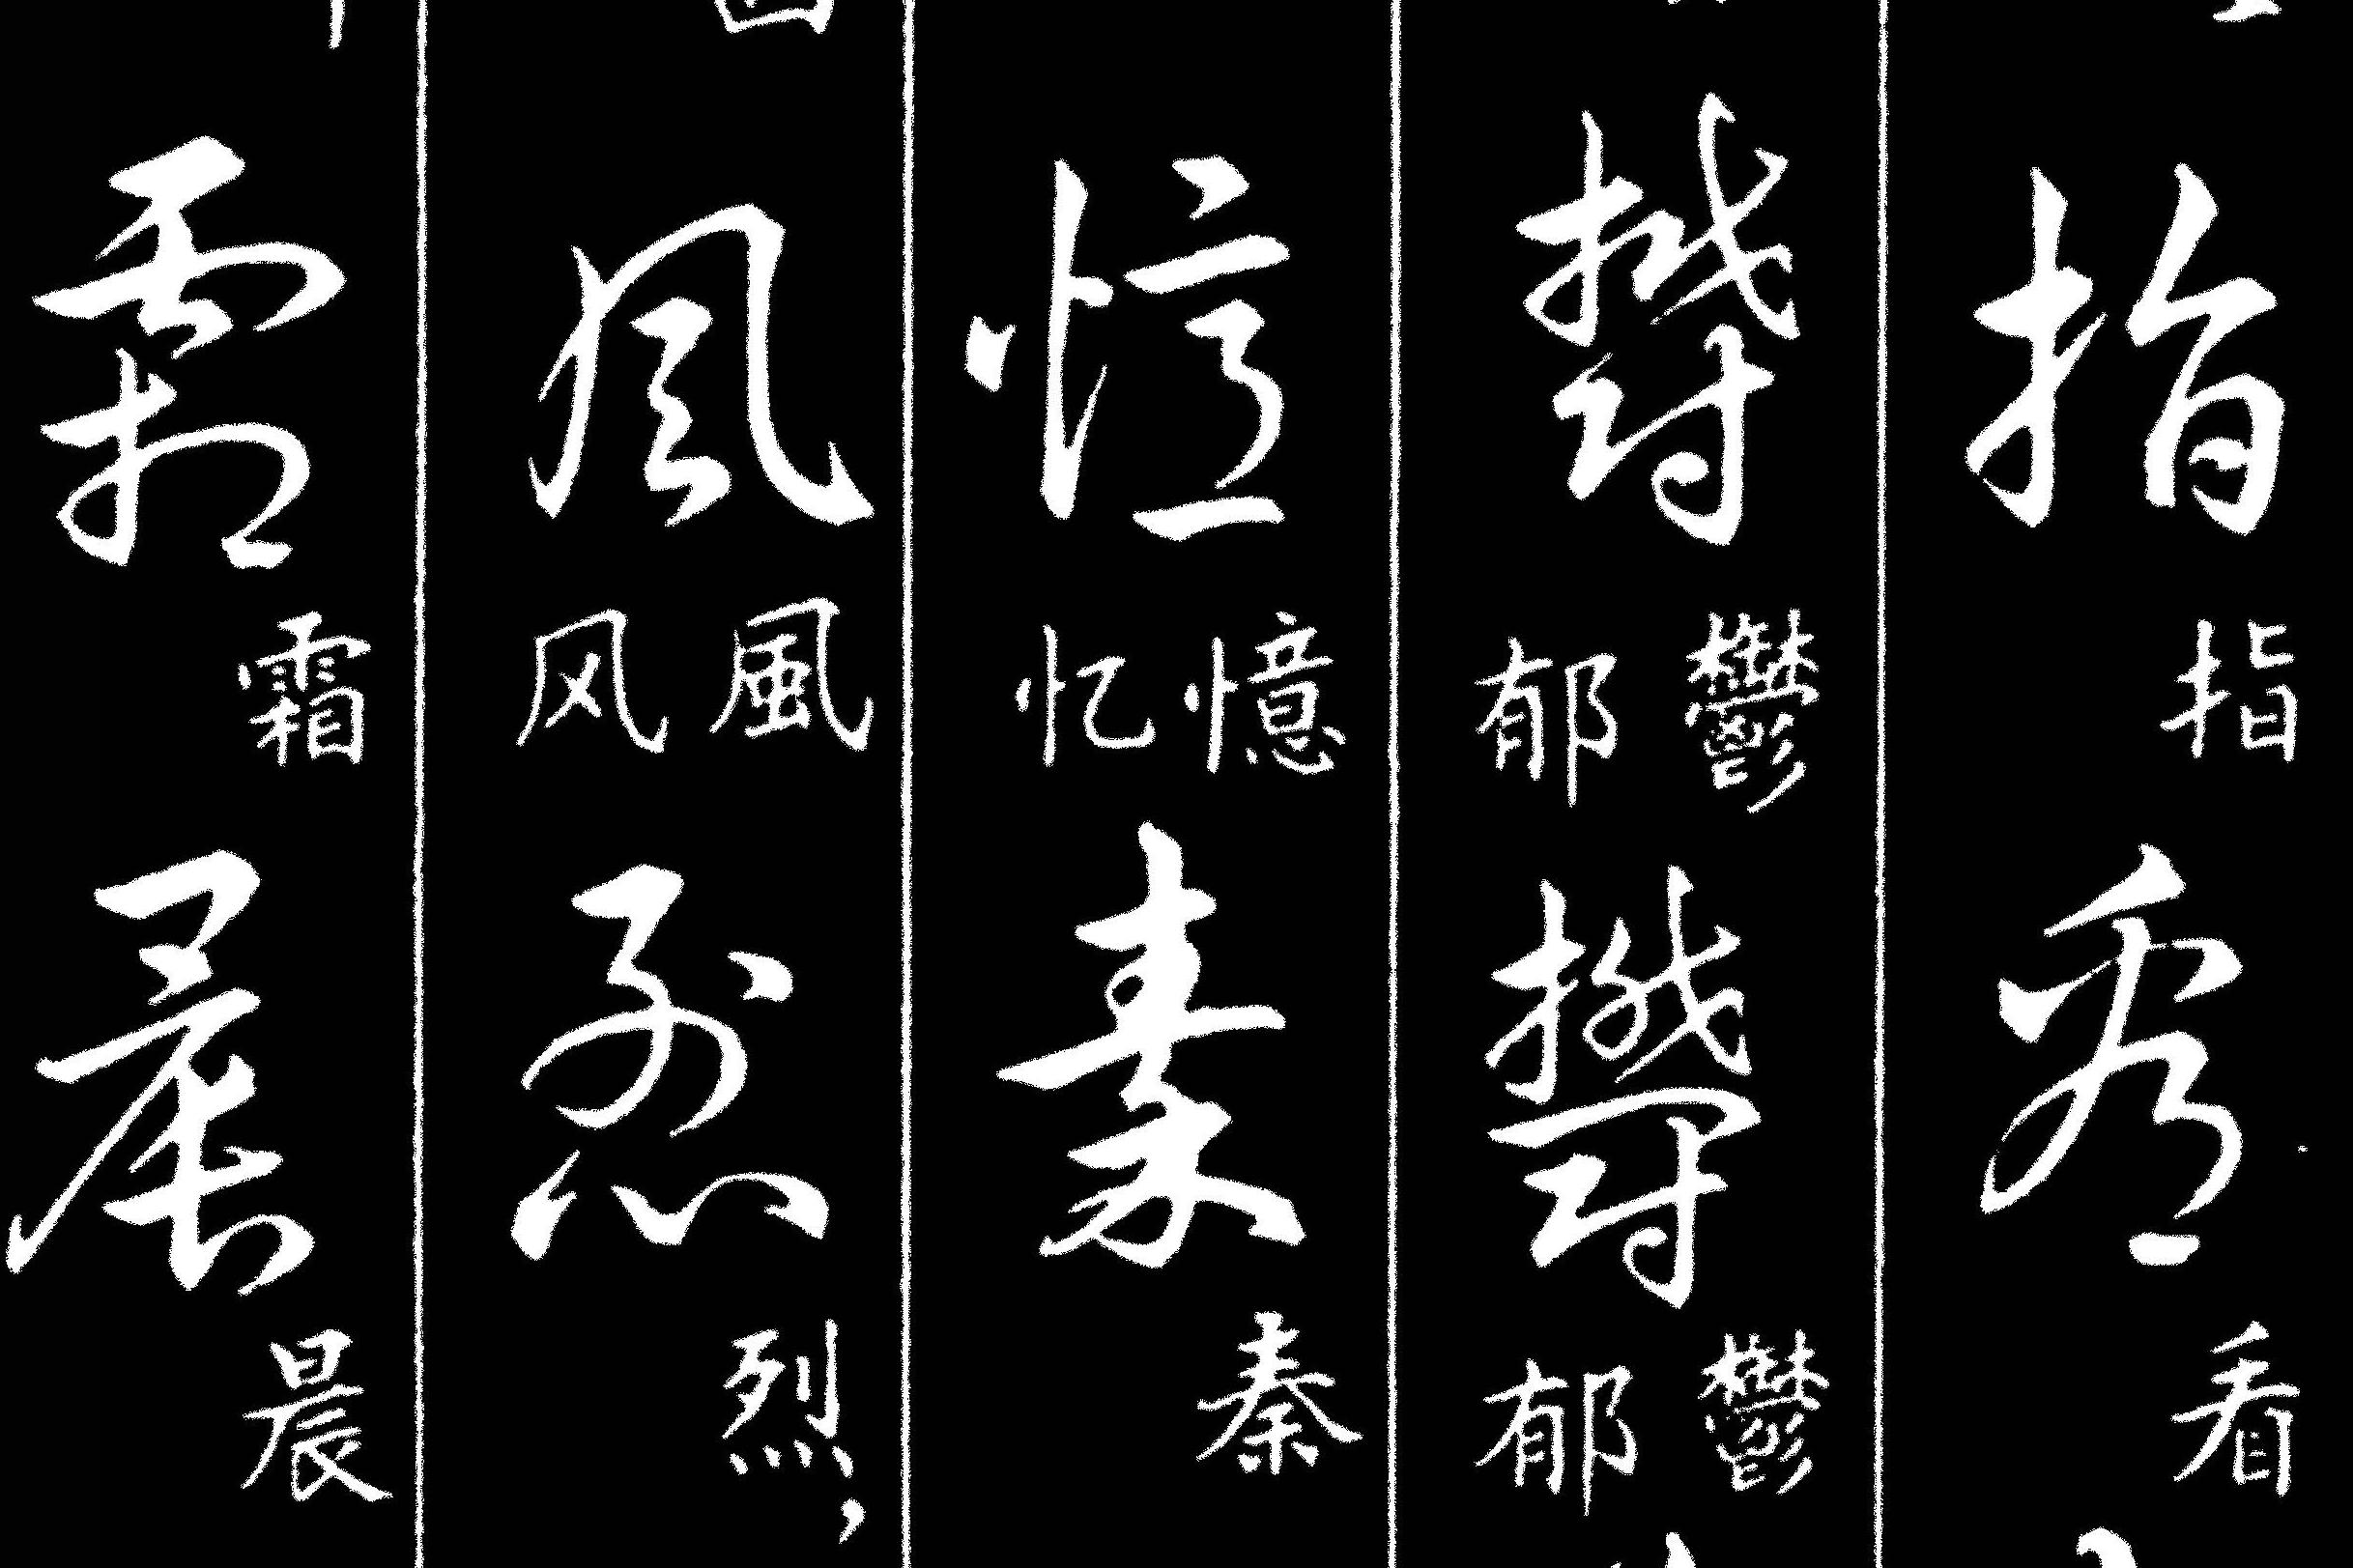 指 指 看 看
鬱 鬱 郁 鬱 鬱 郁
憶 憶 忆 秦 秦
風 風 风 烈 烈，
霜 霜 晨 晨